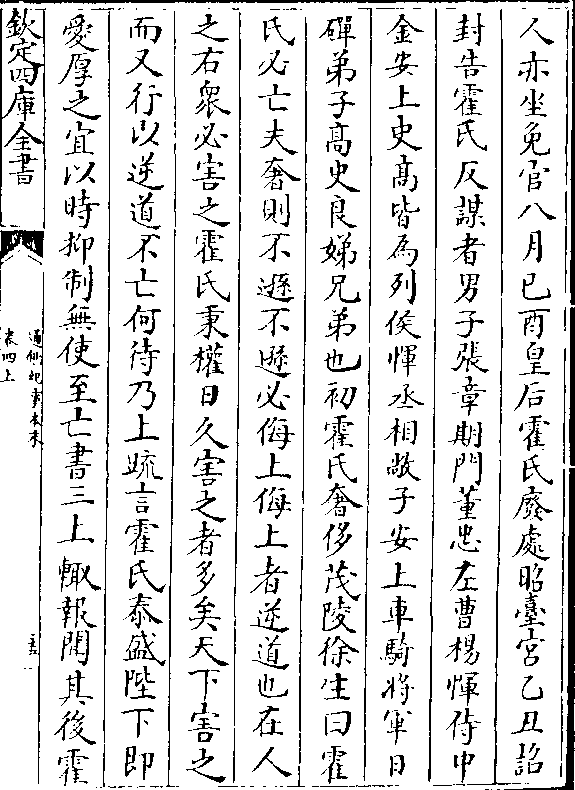 人亦坐免官八月己酉皇后霍氏廢處昭臺宮乙丑詔
封告霍氏反謀者男子張章期門董忠左曹楊惲侍中
金安上史髙皆為列侯惲丞相敞子安上車騎將軍日
磾弟子髙史良娣兄弟也初霍氏奢侈茂陵徐生曰霍
氏必亡夫奢則不遜不遜必侮上侮上者逆道也在人
之右衆必害之霍氏秉權日久害之者多矣天下害之
而又行以逆道不亡何待乃上疏言霍氏泰盛陛下即
愛厚之宜以時抑制無使至亡書三上輙報聞其後霍
欽定四庫全書
通鑑紀事本末
卷四上